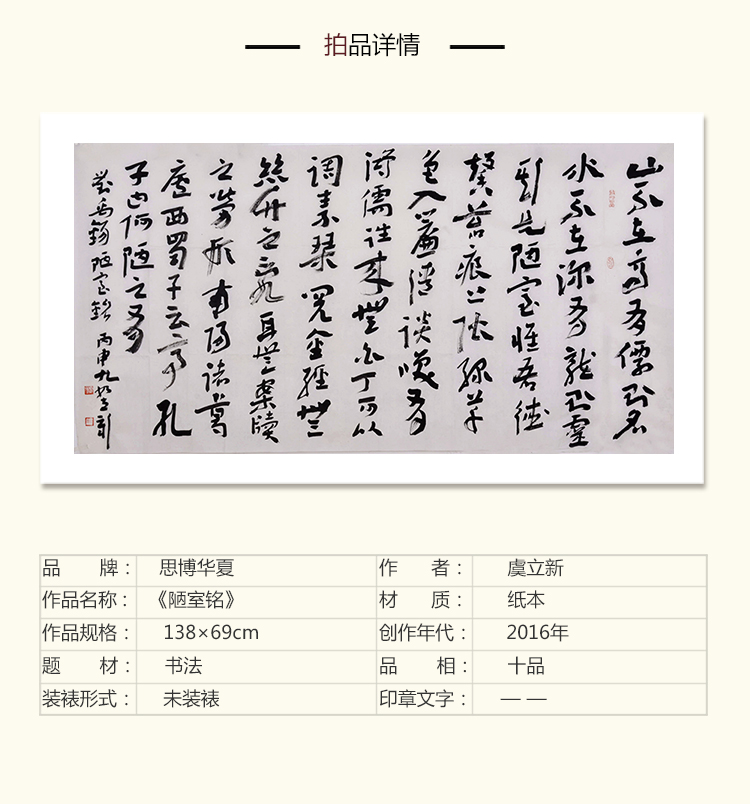 拍品详情
山不在高有僊則名
水不在深有龍則靈
斯是陋室惟吾德
馨苔痕上階綠草
色入簾清談笑有
鴻儒往來無白丁可以
調素琴閱金經無
絲竹之亂耳無案牘
之勞形南陽諸葛
廬西蜀子云亭孔
子曰何陋之有
劉禹錫陋室銘 丙申九 立新
品 牌： 思博华夏 作 者： 虞立新
作品名称： 《陋室铭》 材 质： 纸本
作品规格： 138×69cm 创作年代： 2016年
题 材： 书法 品 相： 十品
装裱形式： 未装裱 印章文字： — —